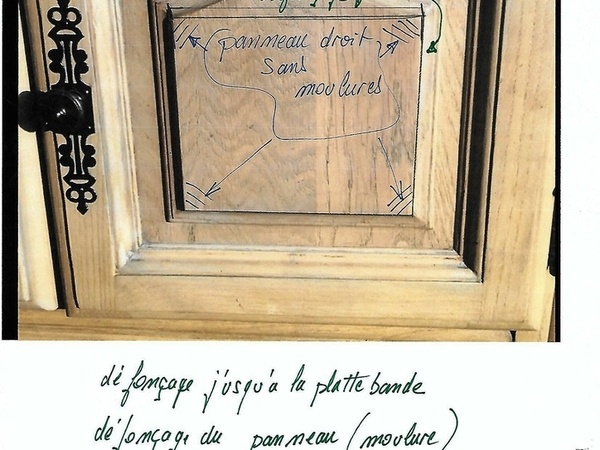 panneau droit
Sans
moulures
défonçage j'usqu'a la platte bande
défonçage du panneau (moulure)